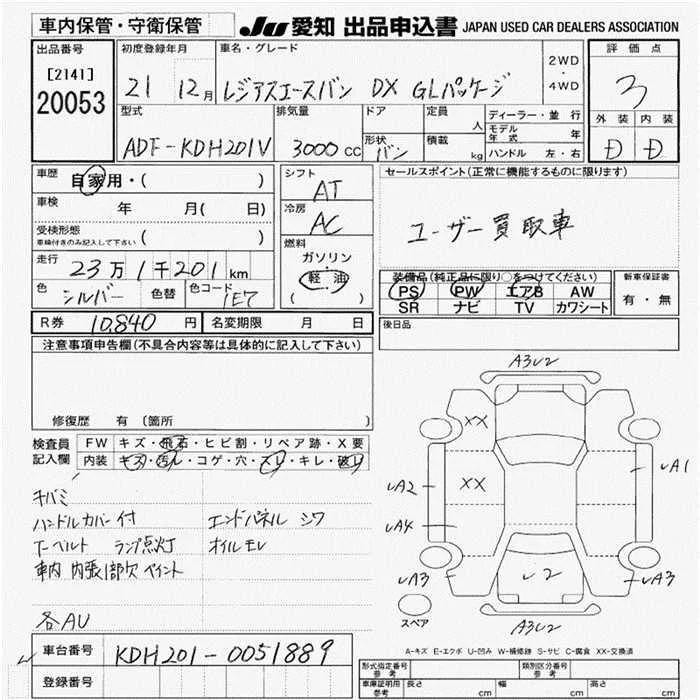 車内保管・守衛保管 JU 愛知 出品申込書 JAPAN USED CAR DEALERS ASSOCIATION
出品番号 [2141] 20053
初度登録年月 21 12月
車名・グレード レジアスエースバン DX GLパッケージ
2WD・4WD
評価点 3
外装 D 内装 D
型式 ADF-KDH201V
排気量 3000cc
ドア 形状 バン
定員 人
積載 kg
ディーラー・並行
モデル年式 年
ハンドル 左・右
車歴 自家用・( )
車検 年 月( 日)
受検形態 車検付きのみ記入して下さい ( )
走行 23万1千201km
色 シルバー 色替 色コード 1E7
シフト AT
冷房 AC
燃料 ガソリン 軽油 ( )
セールスポイント(正常に機能するものに限ります)
ユーザー買取車
装備品(純正品に限り○をつけてください)
PS PW エアB AW
SR ナビ TV カワシート
新車保証書 有・無
R券 10,840円 名変期限 月 日
後日品
注意事項申告欄(不具合内容等は具体的に記入して下さい)
修復歴 有 〔箇所
検査員記入欄
FW キズ・飛石・ヒビ割・リペア跡・X要
内装 キズ・汚レ・コゲ・穴・スレ・キレ・破レ
キバミ
ハンドルカバー付 エンドパネル シワ
T-ベルト ランプ点灯 オイルモレ
車内 内張1部欠 ペイント
各AU
A3U2
XX
UA1
UA2 XX
UA4
UA3 U2 UA3
スペア
A3U2
A-キズ E-エクボ U-凹み W-補修跡 S-サビ C-腐食 XX-交換済
車台番号 KDH201-0051889
登録番号
形式指定番号 参考 類別区分番号 参考
車庫証明用 参考 長さ cm 幅 cm 高さ cm